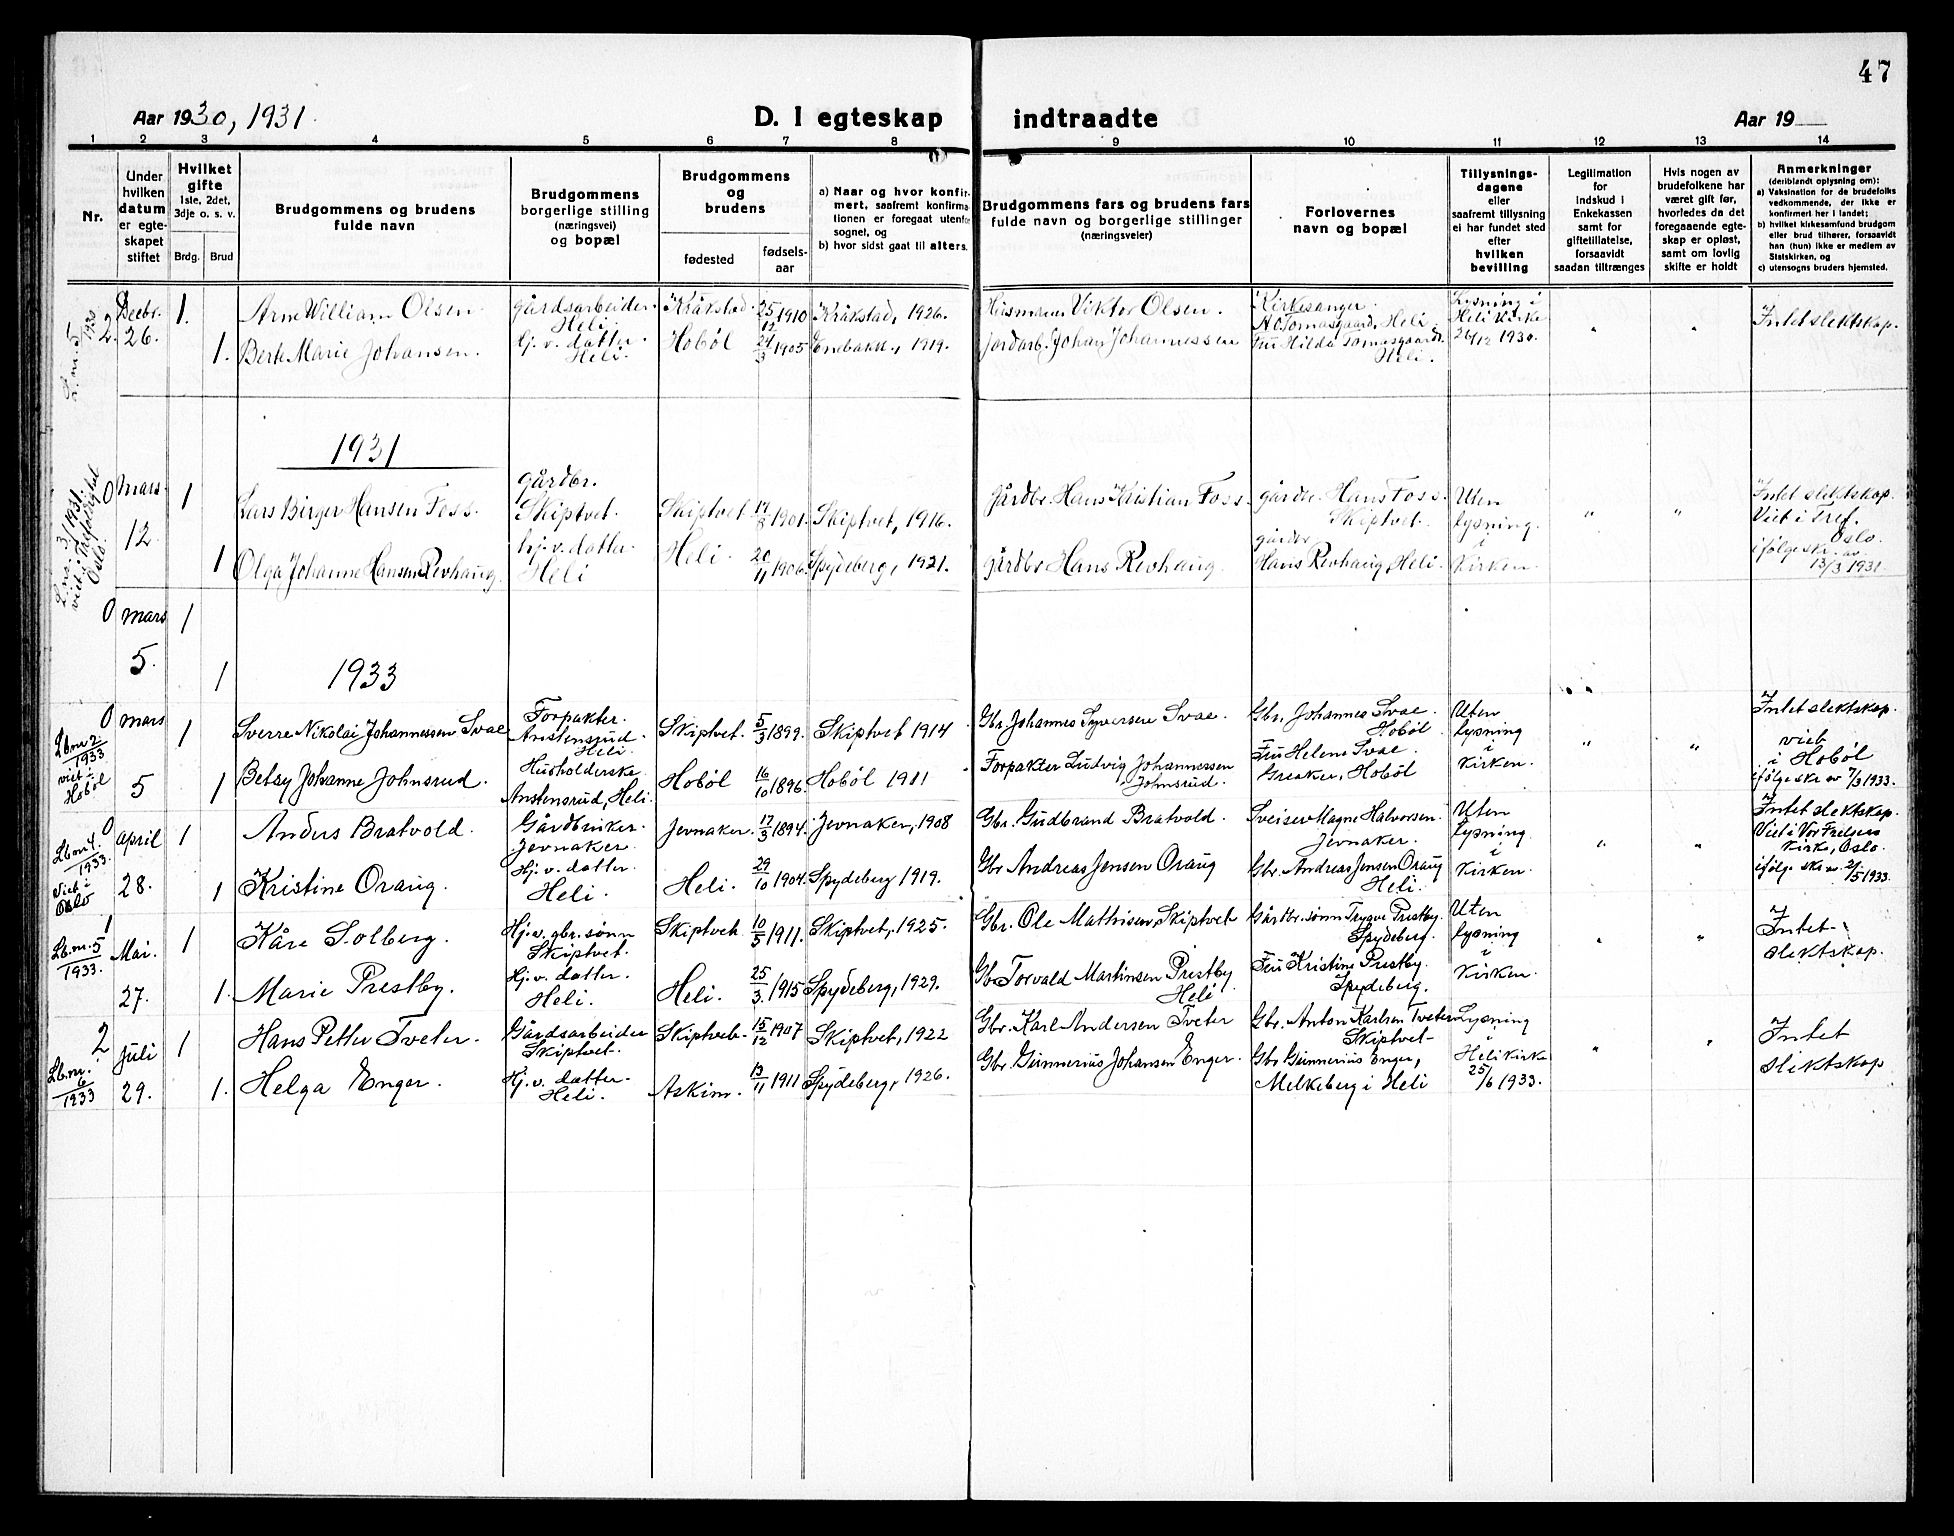 47
Aar 1930, 1931.
D. I egteskap indtraadte
Aar 19
1 2 3 4 5 6 7 8 9 10 11 12 13 14
Nr.
Under
hvilken
datum
er egte-
skapet
stiftet
Hvilket
gifte
1ste, 2det,
3dje o. s. v.
Brdg. Brud
Brudgommens og brudens
fulde navn
Brudgommens
borgerlige stilling
(næringsvei)
og bopæl
Brudgommens
og
brudens
fødested
fødsels-
aar
a) Naar og hvor konfir-
mert, saafremt konfirma-
tionen er foregaat utenfor
sognet, og
b) hvor sidst gaat til alters.
Brudgommens fars og brudens fars
fulde navn og borgerlige stillinger
(næringsveier)
Forlovernes
navn og bopæl
Tillysnings-
dagene
eller
saafremt tillysning
ei har fundet sted
efter
hvilken
bevilling
Legitimation
for
indskud i
Enkekassen
samt for
giftetillatelse,
forsaavidt
saadan tiltrænges
Hvis nogen av
brudefolkene har
været gift før,
hvorledes da det
foregaaende egte-
skap er opløst,
samt om lovlig
skifte er holdt
Anmerkninger
(deriblandt oplysning om):
a) Vaksination for de brudefolks
vedkommende, der ikke er
konfirmert her i landet;
b) hvilket kirkesamfund brudgom
eller brud tilhører, forsaavidt
han (hun) ikke er medlem av
Statskirken, og
c) utensogns bruders hjemsted.
L. nr. 5 1930
2.
Decbr.
26.
1.
Arne William Olsen
gårdsarbeider.
Heli.
Kråkstad
25/12 1910
Kråkstad, 1926.
Husmann Viktor Olsen.
Kirkesanger.
A. O. Tomasgaard, Heli.
Lysning i
Heli Kirke
26/12 1930.
"
"
Intet slektskap.
1.
Berte Marie Johansen.
Hj. v. datter.
Heli.
Hobøl
24/3 1905
Enebakk, 1919.
jordarb. Johan Johannessen
Fru Hilda Tomasgaard.
Heli.
1931
L. nr. 3/1931.
viet i Trefoldighet
Oslo.
0
mars
12.
1
Lars Birger Hansen Foss.
gårdbr.
Skiptvet.
Skiptvet
1901.
Skiptvet, 1916.
Gårdbr. Hans Kristian Foss.
gårdbr. Hans Foss.
Skiptvet.
Uten
lysning.
i
Kirken.
"
"
Intet slektskap.
Viet i Tref.
Oslo.
ifølge skr. av.
13/3 1931
1
Olga Johanne Hansen Revhaug.
hj. v. datter.
Heli
Heli.
20/11 1906.
Spydeberg, 1921.
Gårdbr Hans Revhaug.
gårdbr
Hans Revhaug, Heli.
0
mars
5.
1
1
1933
Lb. nr 2.
1933
viet i
Hobøl
0
mars
5
1
Sverre Nikolai Johannessen Svae
Forpakter.
Anstensrud
Heli.
Skiptvet.
5/3 1899.
Skiptvet 1914
Gbr. Johannes Syversen Svae.
Gbr. Johannes Svae.
Hobøl
Uten
lysning
i
Kirken.
"
"
Intet slektskap.
viet
i Hobøl
ifølge skr av 7/3 1933.
1
Betsy Johanne Johnsrud.
Husholderske
Anstensrud, Heli.
Hobøl
16/10 1896.
Hobøl 1911
Forpakter Ludvig Johannessen
Johnsrud.
Fru Helene Svae.
Greaker, Hobøl
Lb. nr 4.
1933.
Viet i
Oslo
0
april
28.
1
Anders Bratvold.
Gårdbruker.
Jevnaker.
Jevnaker.
17/3 1894.
Jevnaker, 1908
Gbr. Gudbrand Bratvold.
Sveiser Magne Halvorsen.
Jevnaker.
Uten
lysning.
i
Kirken.
"
"
Intet slektskap.
Viet i Vor Frelsers
Kirke, Oslo.
ifølge skr av 2/5 1933.
1
Kristine Oraug.
Hj. v. datter.
Heli.
Heli.
29/10 1904.
Spydeberg 1919.
Gbr Andreas Jensen Oraug
Gbr. Andreas Jensen Oraug
Heli.
Lb. nr. 5
1933.
1
Mai.
27.
1
Kåre Solberg.
Hj. v. gbr. sønn
Skiptvet.
Skiptvet.
10/5 1911.
Skiptvet, 1925.
Gbr. Ole Mathisen, Skiptvet
Gårdbr. sønn Trygve Prestby.
Spydeberg.
Uten
lysning
i
Kirken.
"
"
Intet
slektskap.
1.
Marie Prestby.
Hj. v. datter.
Heli.
Heli.
25/3. 1915
Spydeberg, 1929.
Gbr Torvald Martinsen Prestby
Heli
Fru Kristine Prestby.
Spydeberg.
Lb. nr.
6
1933
2
Juli
29.
1
Hans Petter Tveter.
Gårdsarbeider
Skiptvet.
Skiptvet.
15/12 1907
Skiptvet, 1922
Gbr. Karl Andersen Tveter
Gbr. Anton Karlsen Tveter
Skiptvet
Lysning
i
Heli Kirke
25/6 1933.
"
"
Intet
slektskap
1.
Helga Enger.
Hj. v. datter.
Heli.
Askim.
13/11 1911
Spydeberg, 1926.
Gbr. Gunnerius Johansen Enger.
Gbr Gunnerius Enger,
Melkeberg i Heli